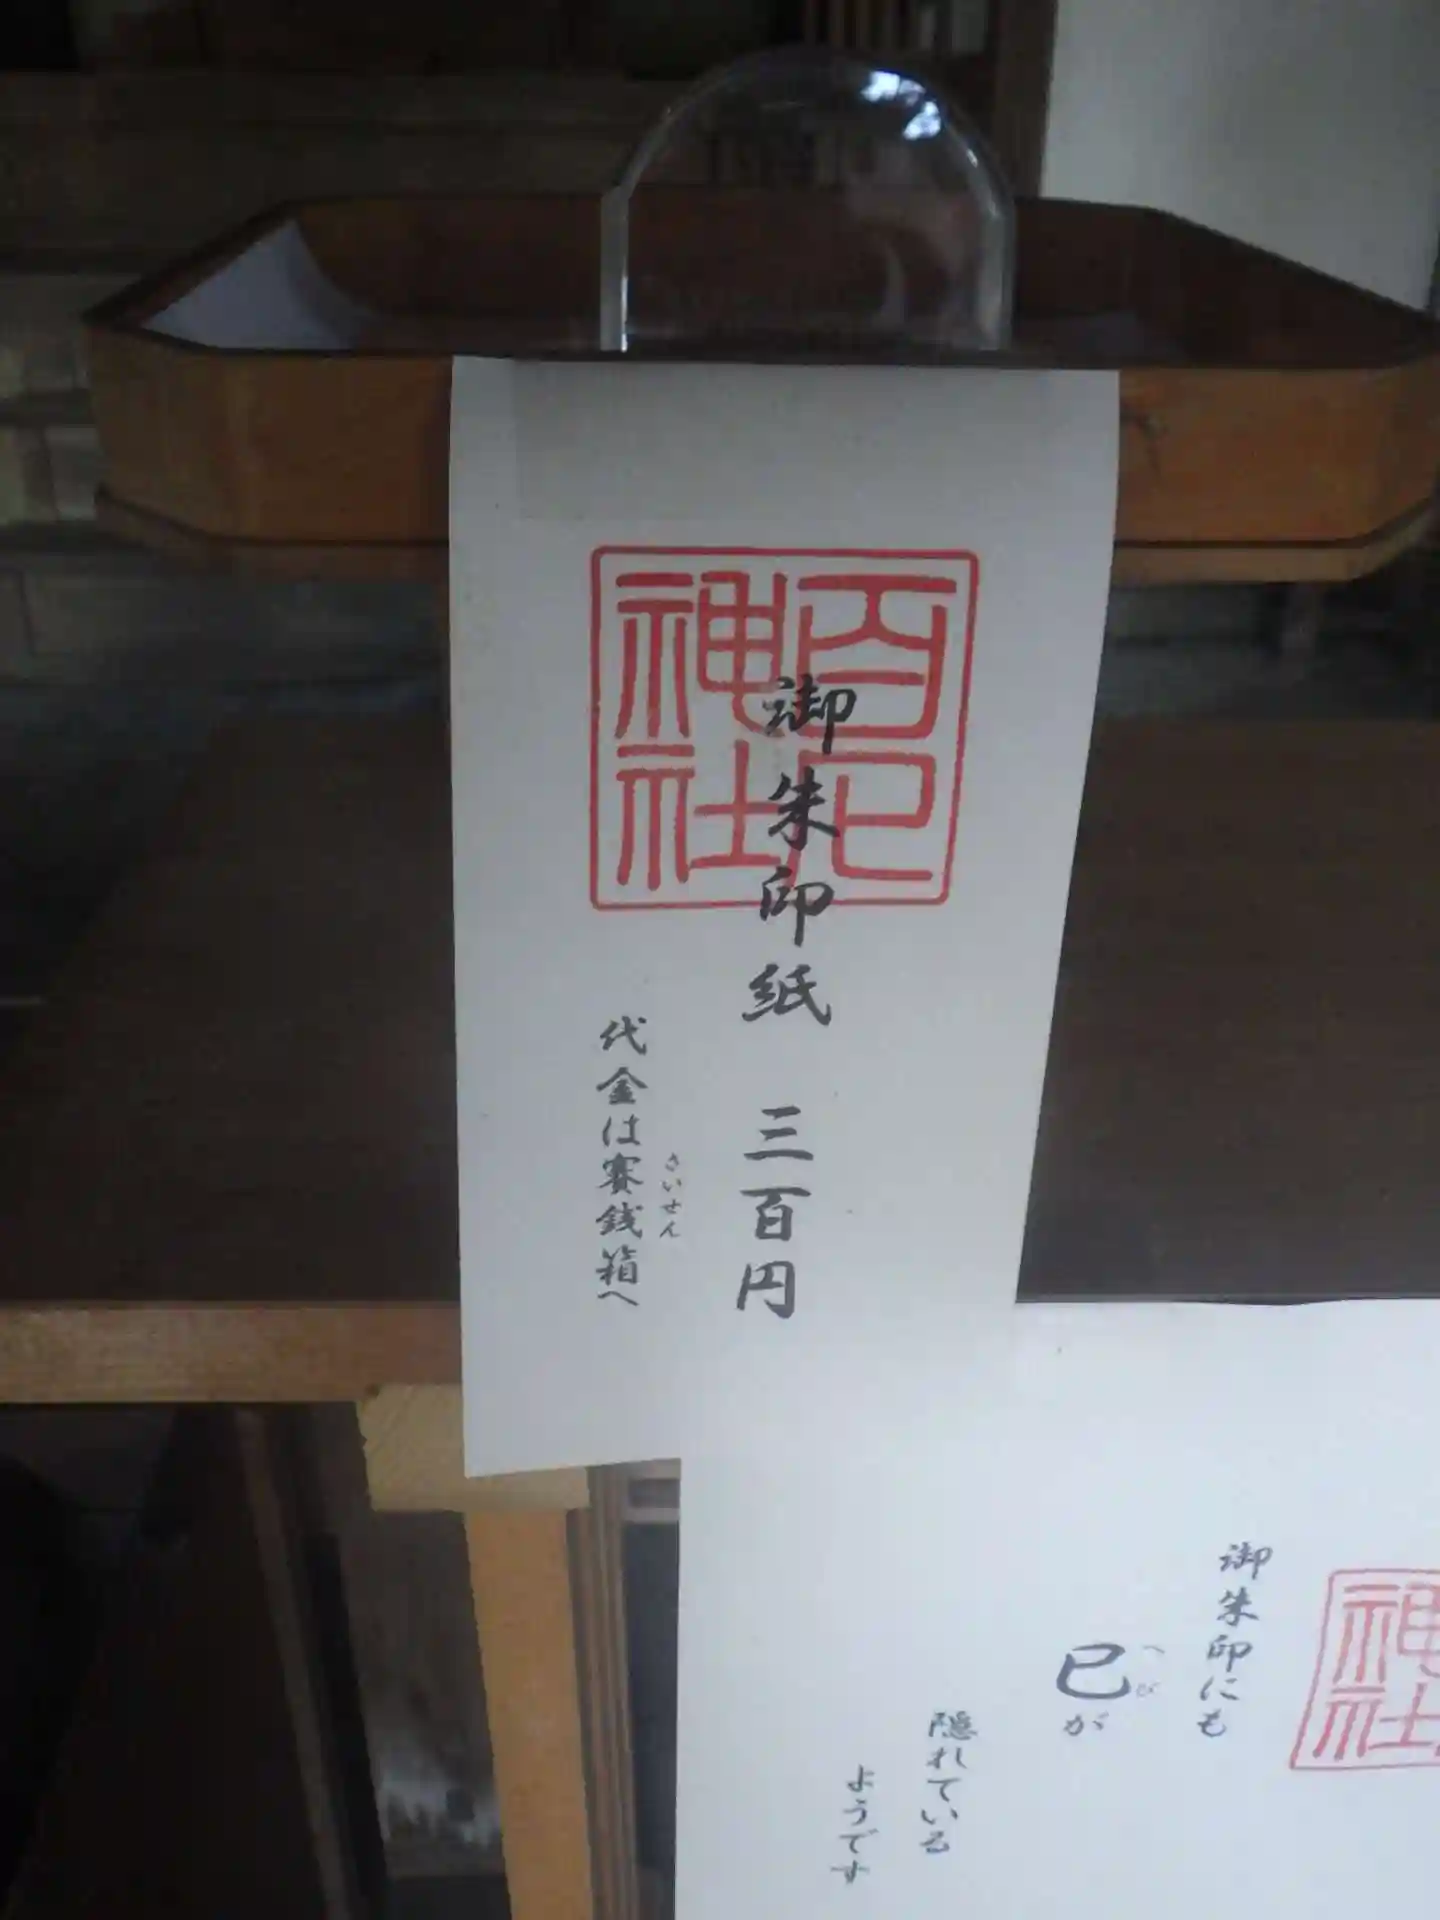 神社
御朱印紙 三百円
さいせん
代金は賽銭箱へ
神社
御朱印にも
へび
巳が
隠れている
ようです